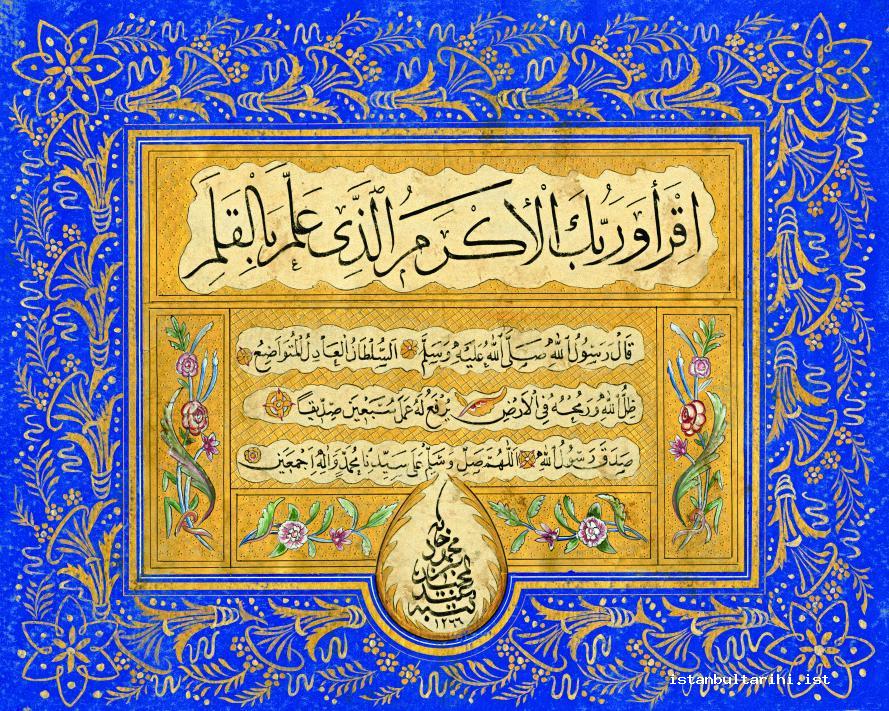 اِقْرَأْ وَرَبُّكَ الْأَكْرَمُ الَّذِي عَلَّمَ بِالْقَلَمِ
قَالَ رَسُولُ اللّٰهِ صَلَّى اللّٰهُ عَلَيْهِ وَسَلَّمَ السُّلْطَانُ الْعَادِلُ الْمُتَوَاضِعُ
ظِلُّ اللّٰهِ وَرُمْحُهُ فِي الْأَرْضِ يُرْفَعُ لَهُ عَمَلُ سَبْعِينَ صِدِّيقًا
صَدَقَ رَسُولُ اللّٰهِ اللّٰهُمَّ صَلِّ وَسَلِّمْ عَلَى سَيِّدِنَا مُحَمَّدٍ وَآلِهِ أَجْمَعِينَ
١٢٦٦
istanbultarihi.ist